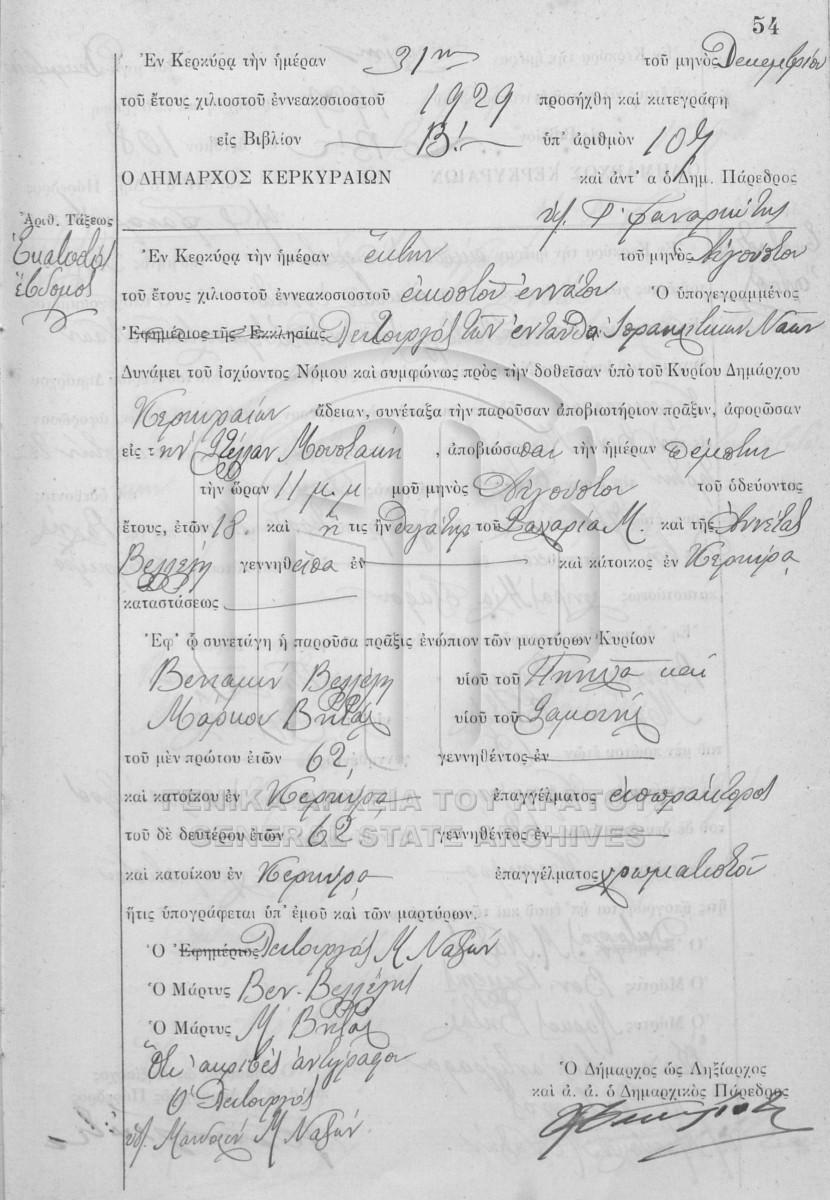 54
Ἐν Κερκύρᾳ τὴν ἡμέραν 31ην τοῦ μηνὸς Δεκεμβρίου
τοῦ ἔτους χιλιοστοῦ ἐννεακοσιοστοῦ 1929 προσήχθη καὶ κατεγράφη
εἰς Βιβλίον Β! ὑπ' ἀριθμὸν 107
Ο ΔΗΜΑΡΧΟΣ ΚΕΡΚΥΡΑΙΩΝ καὶ ἀντ' α ὁ Δημ. Πάρεδρος
Ἀριθ. Τάξεως
Ἑκατοστὸς
ἕβδομος
Ἐν Κερκύρᾳ τὴν ἡμέραν ἕκτην τοῦ μηνὸς Αὐγούστου
τοῦ ἔτους χιλιοστοῦ ἐννεακοσιοστοῦ εἰκοστοῦ ἐννάτου Ὁ ὑπογεγραμμένος
Ἐφημέριος τῆς Ἐκκλησίας Λειτουργός τῶν ἐνταῦθα Ἰσραηλιτικῶν Ναῶν
Δυνάμει τοῦ ἰσχύοντος Νόμου καὶ συμφώνως πρὸς τὴν δοθεῖσαν ὑπὸ τοῦ Κυρίου Δημάρχου
Κερκυραίων ἄδειαν, συνέταξα τὴν παροῦσαν ἀποβιωτήριον πρᾶξιν, ἀφορῶσαν
εἰς τὴν Στέλλαν Μουστακῆ , ἀποβιώσασαν τὴν ἡμέραν πέμπτην
τὴν ὥραν 11 μ.μ μοῦ μηνὸς Αὐγούστου τοῦ ὁδεύοντος
ἔτους, ἐτῶν 18. καὶ ἥ τις ἦν θυγάτηρ τοῦ Ζαχαρία Μ. καὶ τῆς Ἀννέτας
Βελλέλη γεννηθεῖσα ἐν καὶ κάτοικος ἐν Κέρκυρᾳ
καταστάσεως
Ἐφ' ᾧ συνετάγη ἡ παροῦσα πρᾶξις ἐνώπιον τῶν μαρτύρων Κυρίων
Βενιαμὶν Βελλέλη υἱοῦ τοῦ καὶ
Μάρκου Βιτάλ υἱοῦ τοῦ Σαμουὴλ
τοῦ μὲν πρώτου ἐτῶν 62 γεννηθέντος ἐν
καὶ κατοίκου ἐν Κερκύρᾳ ἐπαγγέλματος εἰσπράκτορος
τοῦ δὲ δευτέρου ἐτῶν 62 γεννηθέντος ἐν
καὶ κατοίκου ἐν Κερκύρᾳ ἐπαγγέλματος χρωματιστοῦ
ἥτις ὑπογράφεται ὑπ' ἐμοῦ καὶ τῶν μαρτύρων.
Ὁ Ἐφημέριος Λειτουργός Μ Ναξών
Ὁ Μάρτυς Βεν. Βελλέλης
Ὁ Μάρτυς Μ. Βιτάλ
Ὅτι ἀκριβὲς ἀντίγραφον
Ὁ Λειτουργός
Μ Ναξών
Ὁ Δήμαρχος ὡς Ληξίαρχος
καὶ ἀ. ἀ. ὁ Δημαρχικὸς Πάρεδρος
ΓΕΝΙΚΑ ΑΡΧΕΙΑ ΤΟΥ ΚΡΑΤΟΥΣ
GENERAL STATE ARCHIVES